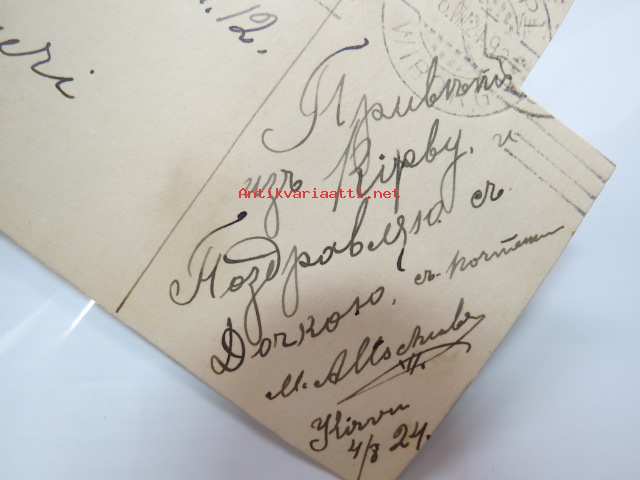 12.
eri
Привѣтъ
изъ Кірву. и
Поздравляю съ
Дочкою. съ почтеніем
M. Altschuler
Kirvu
4/8 24.
Antikvariaatti.net